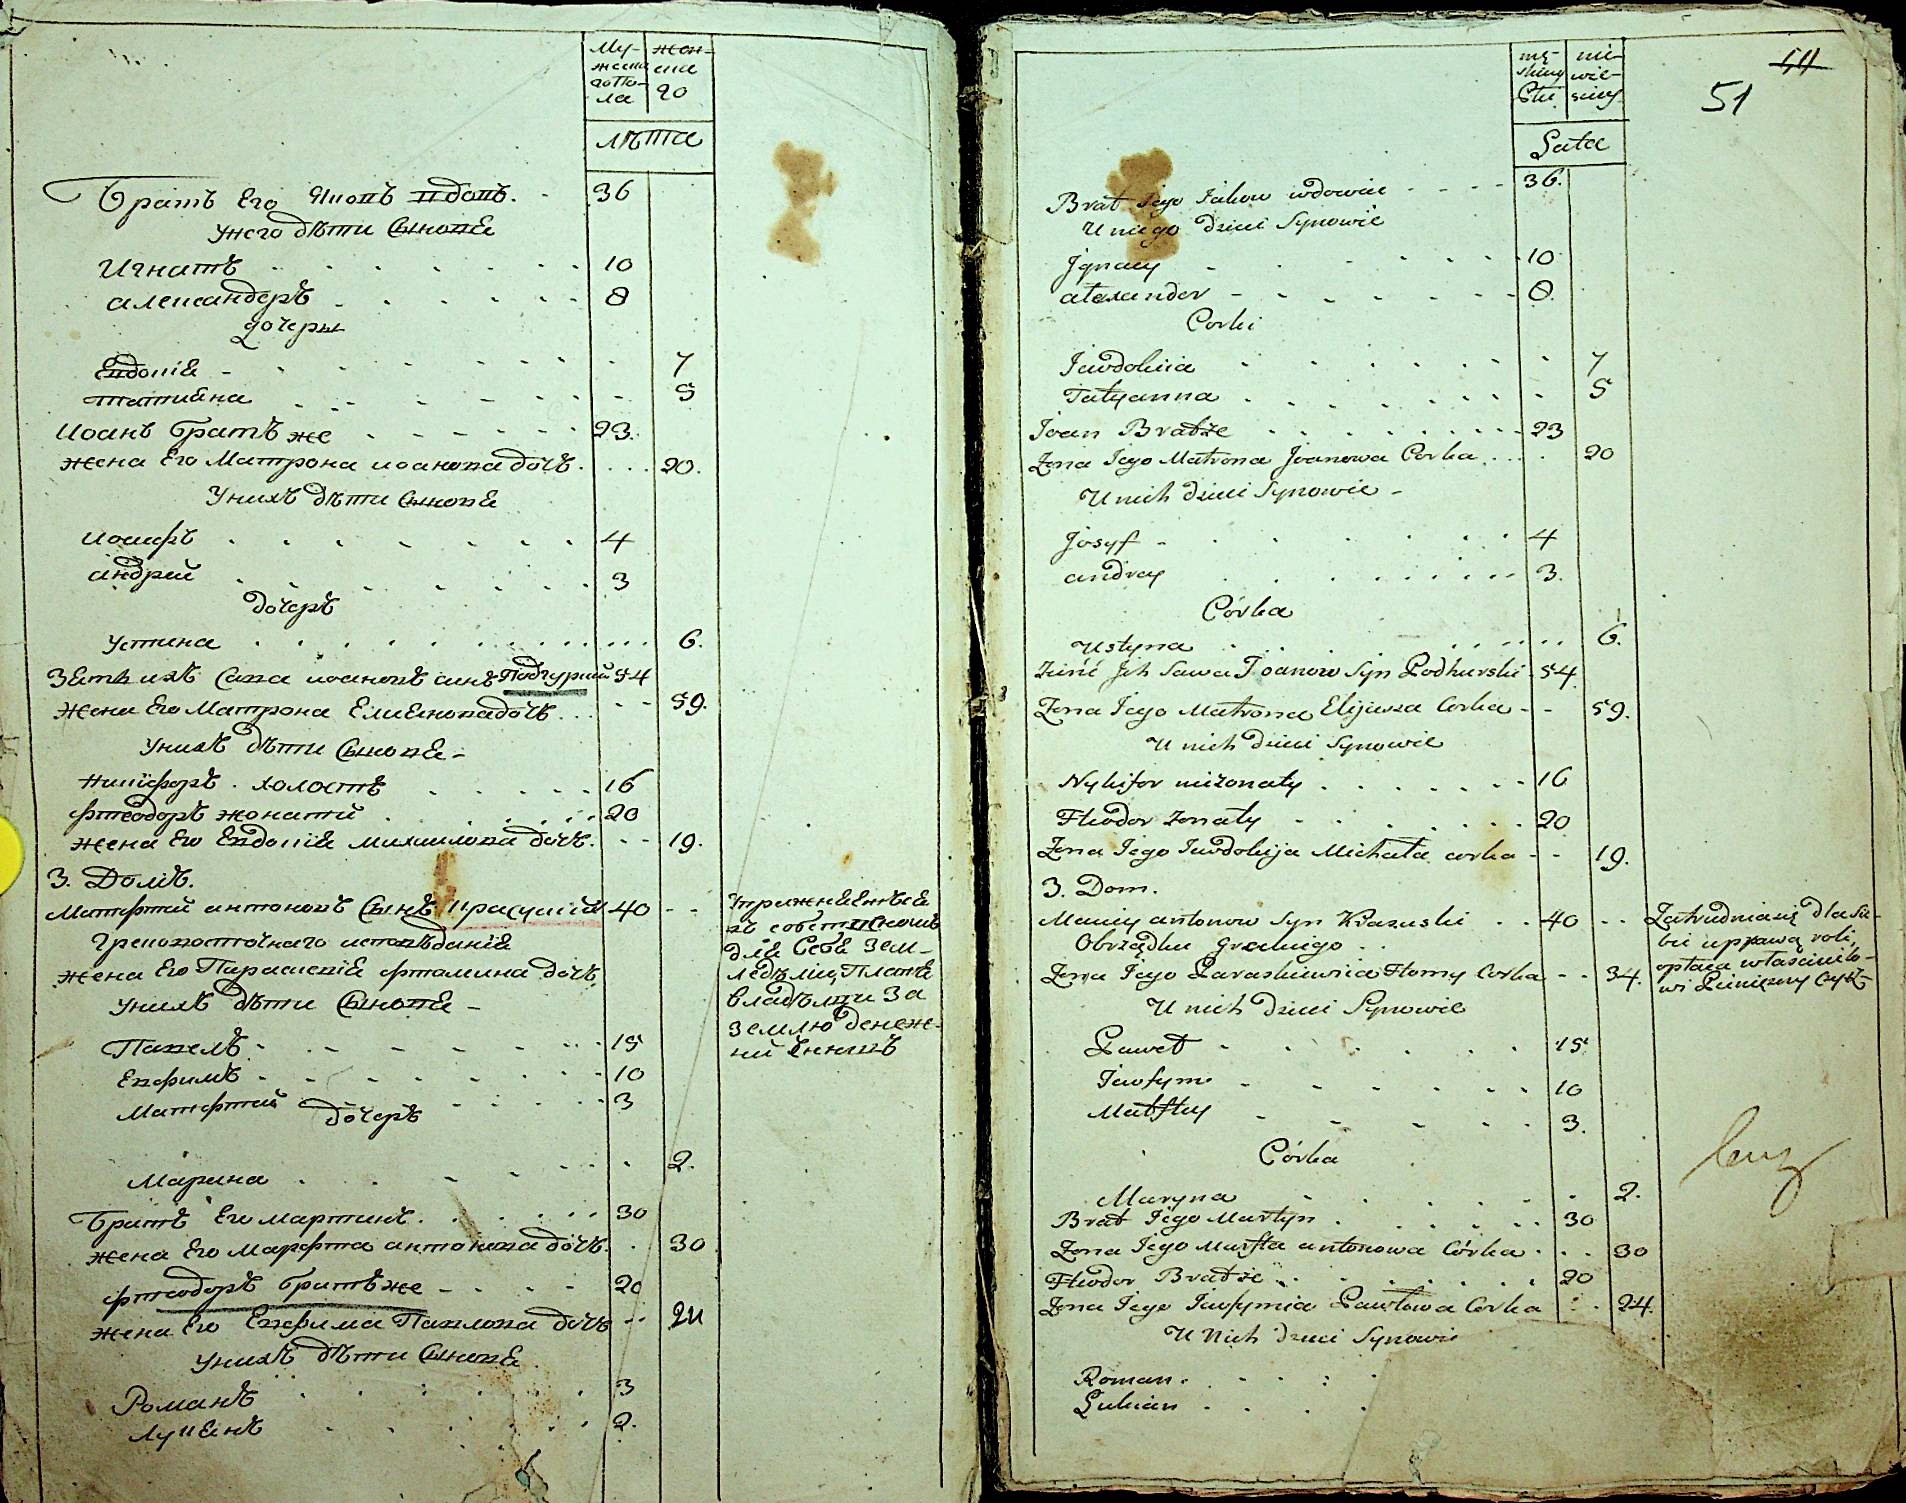 Му-
жеска
го по-
ла
жен-
ска
го
лѣта
Братъ Его Яковъ вдовъ. 36
У него дѣти Сыновя
Игнатъ 10
александеръ 8
дочеры
Евдокія 7
татияна 5
Иоанъ братъ же 23.
жена Его Матрона иоанова дочь. 20.
У нихъ дѣти Сыновя
иосифъ 4
андрей 3
дочеръ
Устина 6.
Зять ихъ Сава иоановъ синъ Подгурский 54
жена Его Матрона Елиянова дочь 59.
У нихъ дѣти Сыновя
никифоръ холостъ 16
фтеодоръ жонатий 20
жена Его Евдокія михаилова дочь. 19.
3. Домъ.
Матфтей антоновъ Сынъ Красуский 40
Грековосточнаго исповѣданія
жена Его Параскевія фтомина дочь
У нихъ дѣти Сыновя
Павелъ 15
Евфимъ 10
Матфтей 3
дочеръ
Марина 2.
братъ Его мартинъ. 30
жена Его Марфта антонова дочь. 30
фтеодоръ братъ же 20
жена Его Евфима Павлова дочь 24
У нихъ дѣти Сыновя
Романъ 3
Лукянъ 2.
упражняется
въ
для себя зем-
ледѣлии, платя
владѣлци за
землю денеж-
ний
mę-
skiey
Płci
nie-
wie-
sciey
Lata
44
51
Brat Jego Jakow wdowiec 36.
U niego dzieci Synowie
Jgnacy 10
alexander 8
Corki
Jewdokiia 7
Tatyanna 5
Joan Bratże 23
Zona Jego Matrona Joanowa Corka 20
U nich dzieci Synowie
Josyf 4
andrey 3.
Córka
Ustyna 6.
Zienć Jch Sawa Joanow Syn Podhurski 54
Zona Jego Matrona Elijasza Corka 59.
U nich dzieci Synowie
Nykifor nieżonaty 16
Fteodor żonaty 20
Zona Jego Jewdokija Michała corka 19.
3. Dom.
Maciey antonow Syn Krasuski 40
Obrządku greckiego
Zona Jego Paraskiewiia Ftomy Corka 34.
U nich dzieci Synowie
Paweł 15
Jewfym 10
Matftey 3.
Córka
Maryna 2.
Brat Jego Martyn 30
Zona Jego Marfta antonowa Córka 30
Fteodor Bratże 20
Zona Jego Jewfymia Pawłowa Corka 24.
U Nich dzieci Synowie
Roman
Lukian
Zatrudnia się dla sie-
bie uprawą roli,
opłaca właścicielo-
wi Pienięzny Czysz-